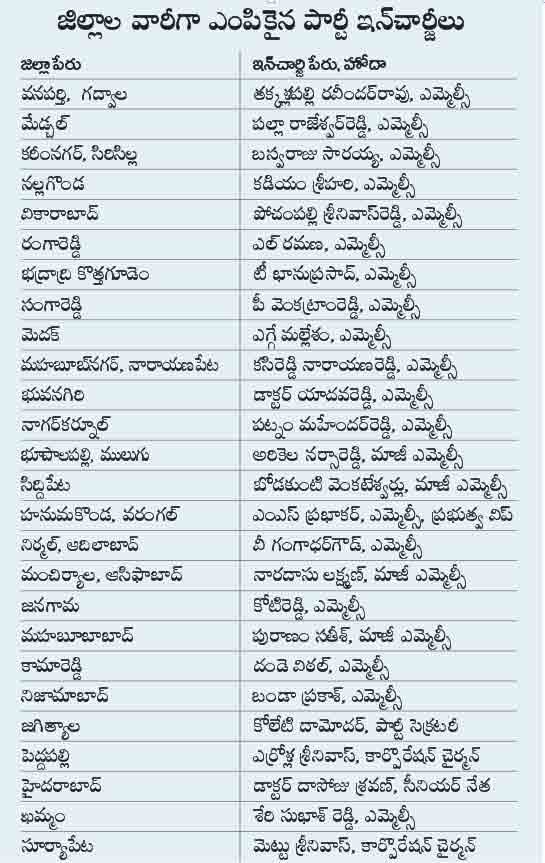 జిల్లాల వారీగా ఎంపికైన పార్టీ ఇన్‌చార్జీలు
జిల్లాపేరు ఇన్‌చార్జిపేరు, హోదా
వనపర్తి, గద్వాల తక్కళ్లపల్లి రవీందర్‌రావు, ఎమ్మెల్సీ
మేడ్చల్ పల్లా రాజేశ్వర్‌రెడ్డి, ఎమ్మెల్సీ
కరీంనగర్, సిరిసిల్ల బస్వరాజు సారయ్య, ఎమ్మెల్సీ
నల్లగొండ కడియం శ్రీహరి, ఎమ్మెల్సీ
వికారాబాద్ పోచంపల్లి శ్రీనివాస్‌రెడ్డి, ఎమ్మెల్సీ
రంగారెడ్డి ఎల్ రమణ, ఎమ్మెల్సీ
భద్రాద్రి కొత్తగూడెం టీ భానుప్రసాద్, ఎమ్మెల్సీ
సంగారెడ్డి పీ వెంకట్రాంరెడ్డి, ఎమ్మెల్సీ
మెదక్ ఎగ్గే మల్లేశం, ఎమ్మెల్సీ
మహబూబ్‌నగర్, నారాయణపేట కసిరెడ్డి నారాయణరెడ్డి, ఎమ్మెల్సీ
భువనగిరి డాక్టర్ యాదవరెడ్డి, ఎమ్మెల్సీ
నాగర్‌కర్నూల్ పట్నం మహేందర్‌రెడ్డి, ఎమ్మెల్సీ
భూపాలపల్లి, ములుగు అరికెల నర్సారెడ్డి, మాజీ ఎమ్మెల్సీ
సిద్దిపేట బోడకుంటి వెంకటేశ్వర్లు, మాజీ ఎమ్మెల్సీ
హనుమకొండ, వరంగల్ ఎంఎస్ ప్రభాకర్, ఎమ్మెల్సీ, ప్రభుత్వ విప్
నిర్మల్, ఆదిలాబాద్ వీ గంగాధర్‌గౌడ్, ఎమ్మెల్సీ
మంచిర్యాల, ఆసిఫాబాద్ నారదాసు లక్ష్మణ్, మాజీ ఎమ్మెల్సీ
జనగామ కోటిరెడ్డి, ఎమ్మెల్సీ
మహబూబాబాద్ పురాణం సతీశ్, మాజీ ఎమ్మెల్సీ
కామారెడ్డి దండె విఠల్, ఎమ్మెల్సీ
నిజామాబాద్ బండా ప్రకాశ్, ఎమ్మెల్సీ
జగిత్యాల కోలేటి దామోదర్, పార్టీ సెక్రటరీ
పెద్దపల్లి ఎర్రోళ్ల శ్రీనివాస్, కార్పొరేషన్ చైర్మన్
హైదరాబాద్ డాక్టర్ దాసోజు శ్రవణ్, సీనియర్ నేత
ఖమ్మం శేరి సుభాశ్ రెడ్డి, ఎమ్మెల్సీ
సూర్యాపేట మెట్టు శ్రీనివాస్, కార్పొరేషన్ చైర్మన్